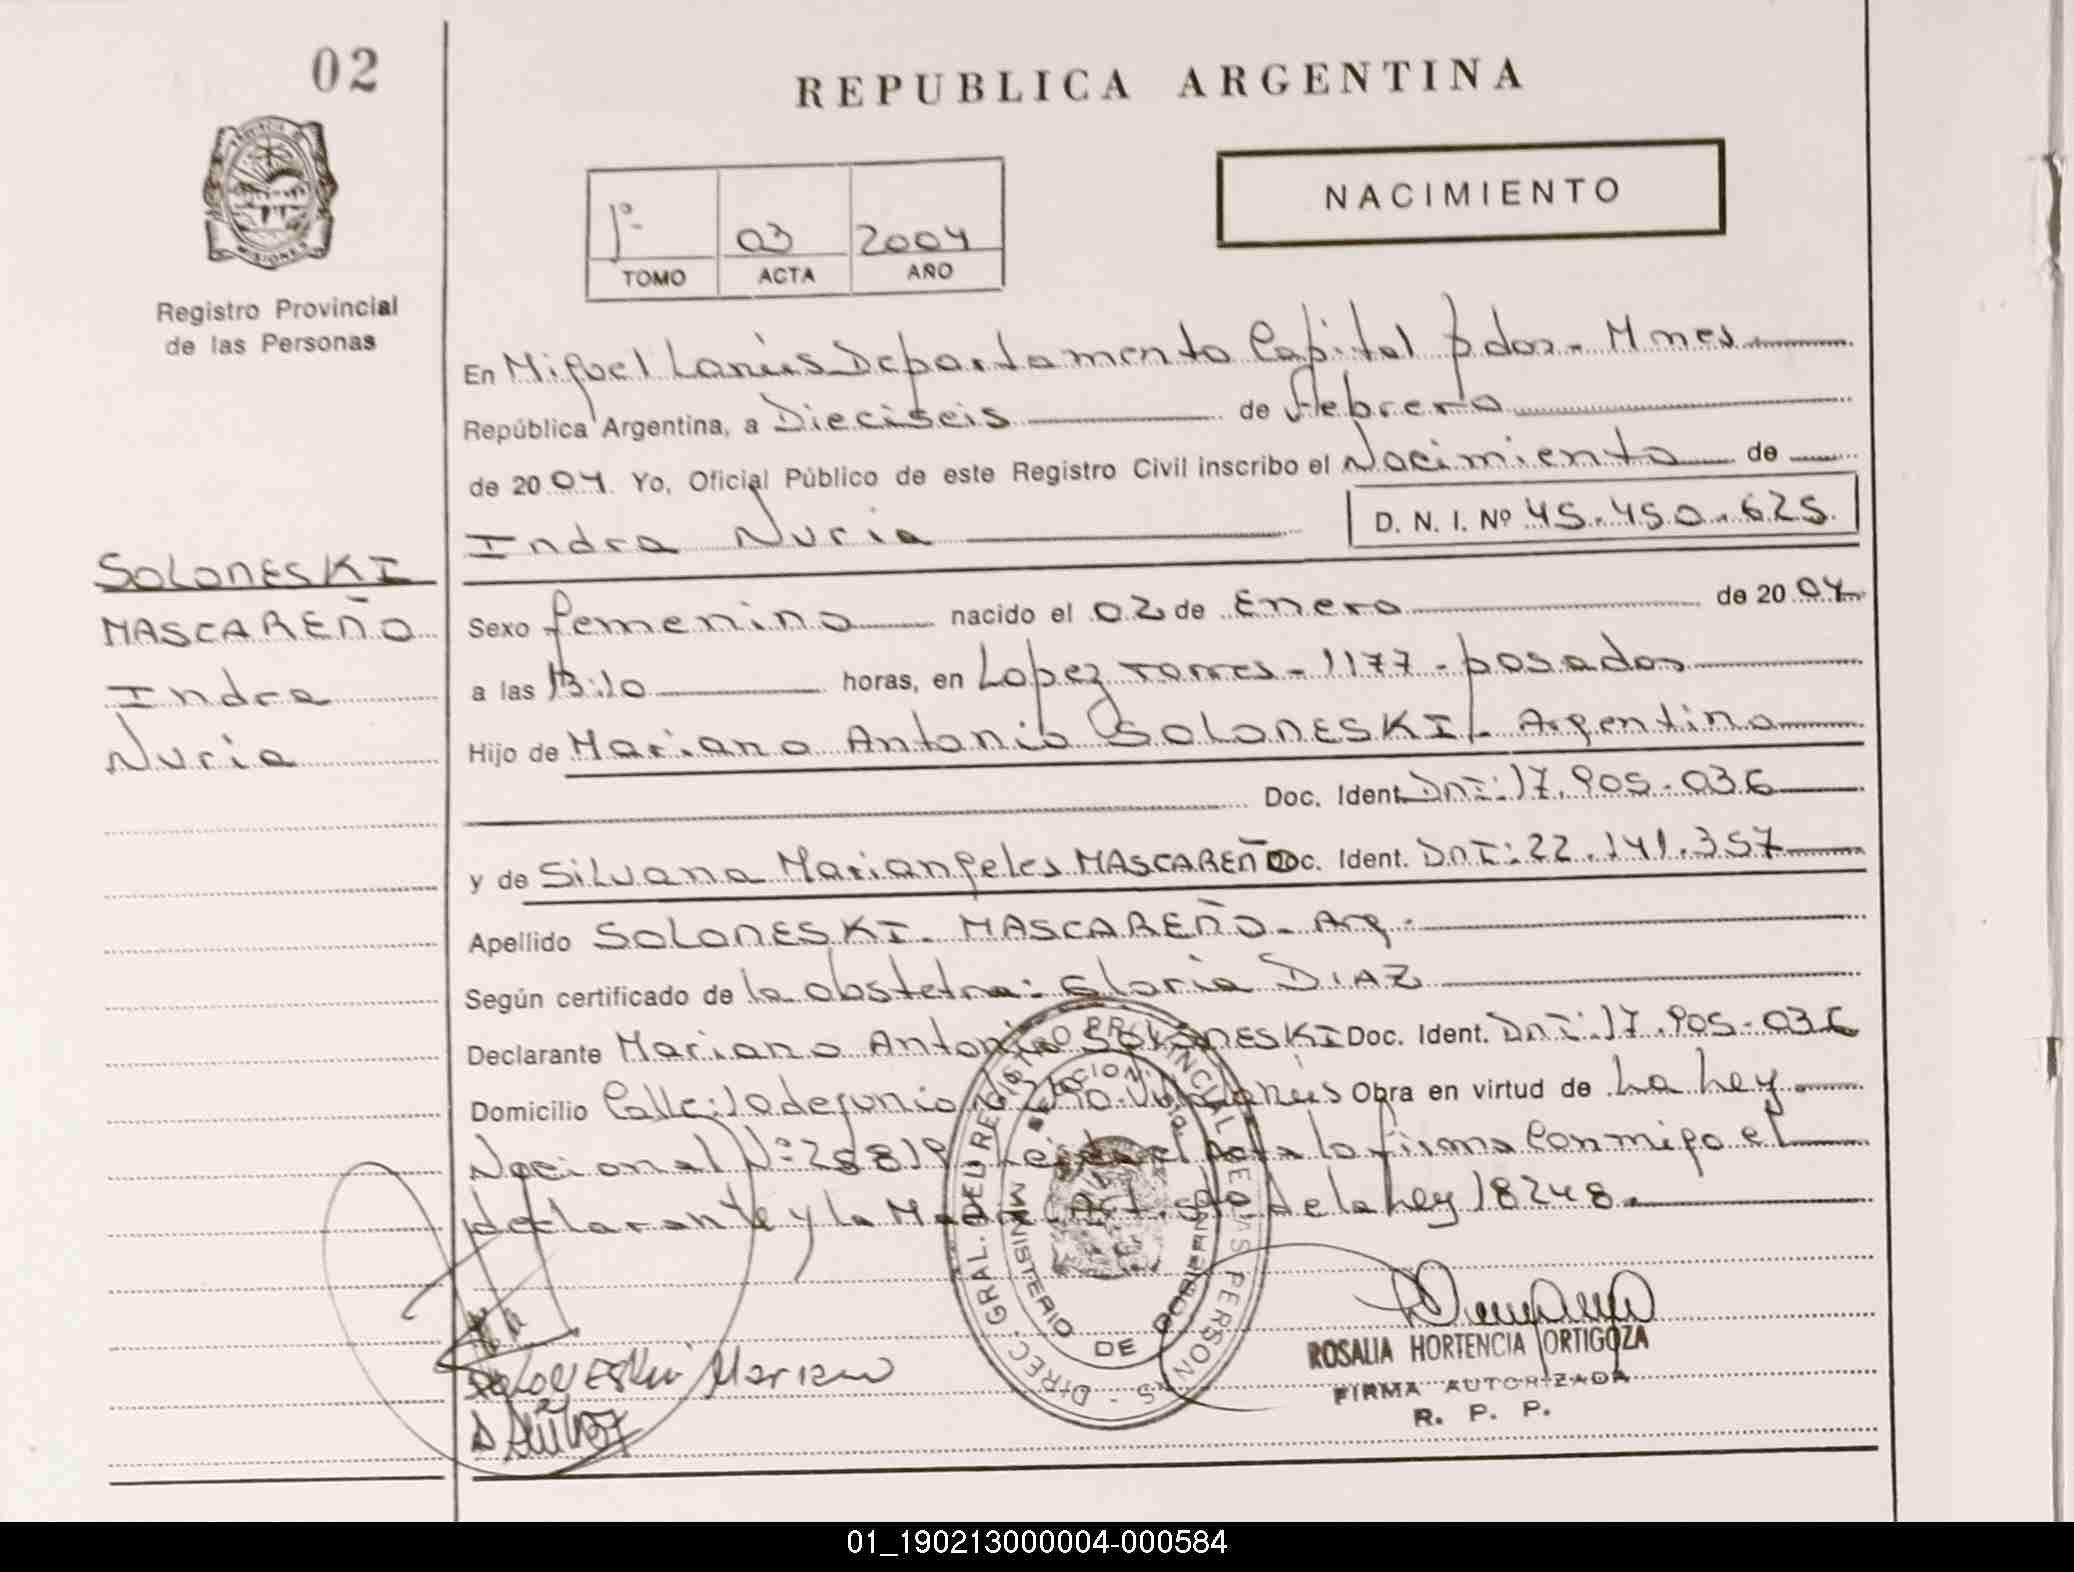 02
REPUBLICA ARGENTINA
NACIMIENTO
1º 03 2004
TOMO ACTA AÑO
Registro Provincial
de las Personas
SOLONESKI
MASCAREÑO
Indra
Nuria
En Miguel Lanús Departamento Capital pdas - Mnes
República Argentina, a Dieciseis de Febrero
de 2004. Yo, Oficial Público de este Registro Civil inscribo el Nacimiento de
Indra Nuria D. N. I. Nº 45.450.625.
Sexo femenino nacido el 02 de Enero de 2004
a las 13:10 horas, en Lopez Torres - 1177 - posadas
Hijo de Mariano Antonio SOLONESKI - Argentino
Doc. Ident. DNI: 17.905.036
y de Silvana Mariangeles MASCAREÑO Doc. Ident. DNI: 22.141.357
Apellido SOLONESKI - MASCAREÑO - Arg.
Según certificado de la obstetra: Gloria DIAZ
Declarante Mariano Antonio SOLONESKI Doc. Ident. DNI: 17.905.036
Domicilio Calle: 10 de junio Lanús Obra en virtud de La Ley
Nacional Nº 25819. Leida el Acta la firma Conmigo el
declarante y la Madre Art. de la Ley 18248.
SOLONESKI Mariano
DIREC. GRAL. DEL REGISTRO PROVINCIAL DE LAS PERSONAS
MINISTERIO DE GOBIERNO
ROSALIA HORTENCIA ORTIGOZA
FIRMA AUTORIZADA
R. P. P.
01_190213000004-000584